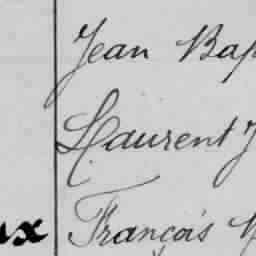 Jean Bap
Laurent J
ux François